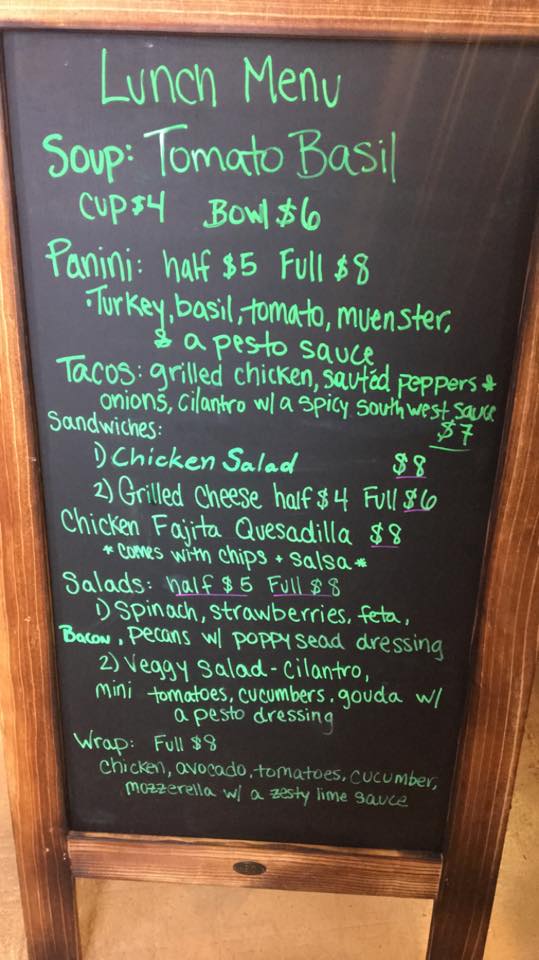 Lunch Menu
Soup: Tomato Basil
cup $4 Bowl $6
Panini: half $5 Full $8
·Turkey, basil, tomato, muenster,
& a pesto sauce
Tacos: grilled chicken, sautéd peppers +
onions, cilantro w/ a spicy southwest sauce
$7
Sandwiches:
1) Chicken Salad $8
2) Grilled Cheese half $4 Full $6
Chicken Fajita Quesadilla $8
*comes with chips + salsa*
Salads: half $5 Full $8
1) Spinach, strawberries, feta,
Bacon, pecans w/ poppysead dressing
2) Veggy Salad - cilantro,
mini tomatoes, cucumbers, gouda w/
a pesto dressing
Wrap: Full $8
chicken, avocado, tomatoes, cucumber,
mozzerella w/ a zesty lime sauce